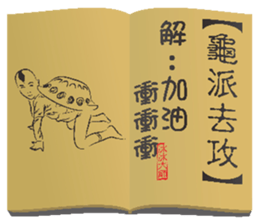 【龜派去攻】
解：加油
衝衝衝